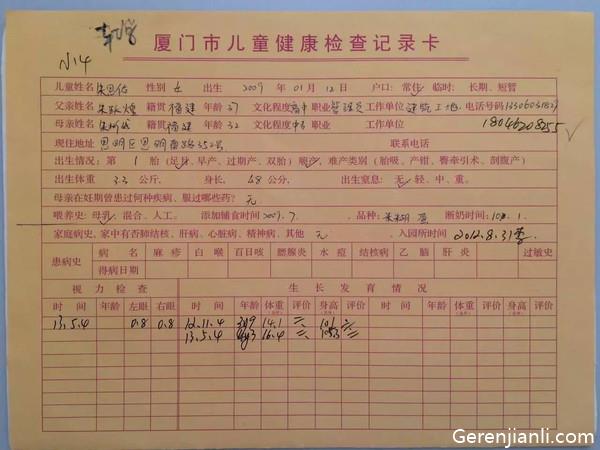 N14
厦门市儿童健康检查记录卡
儿童姓名 性别 女 出生 2009 年 01 月 12 日 户口: 常住 临时: 长期、短暂
父亲姓名 籍贯 福建 年龄 37 文化程度 高中 职业 管理员 工作单位 电话号码
母亲姓名 籍贯 福建 年龄 32 文化程度 职业 工作单位 18046208255
现住地址 思明区思明南路352号 联系电话
出生情况: 第 1 胎 (足月、早产、过期产、双胎) 顺产、难产类别 (胎吸、产钳、臀牵引术、剖腹产)
出生体重 3.3 公斤, 身长, 48 公分, 出生窒息: 无、轻、中、重。
母亲在妊期曾患过何种疾病、服过哪些药? 无
喂养史: 母乳、混合、人工。 添加辅食时间 2009.7. 品种: 米糊 断奶时间: 1.
家庭病史, 家中有否肺结核、肝病、心脏病、精神病、其他 无 , 入园所时间 2012.8.31
患病史 病名 麻疹 白喉 百日咳 腮腺炎 水痘 结核病 乙脑 肝炎 过敏史
得病日期
视力检查 生长发育情况
时间 年龄 左眼 右眼 时间 年龄 体重 评价 身高 评价 时间 年龄 体重 评价 身高 评价
13.5.4 0.8 0.8 12.11.4 3y9 14.1 三 101 三
13.5.4 4y3 16.4 三
Gerenjianli.com